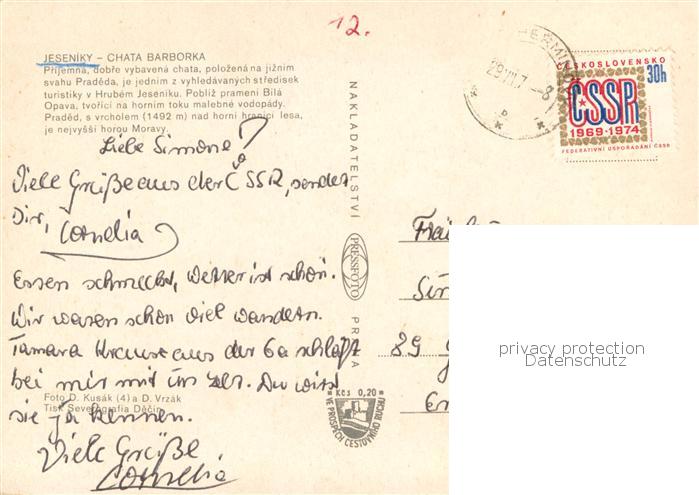 12.
JESENÍKY – CHATA BARBORKA
Příjemná, dobře vybavená chata, položená na jižním
svahu Praděda, je jedním z vyhledávaných středisek
turistiky v Hrubém Jeseníku. Poblíž pramení Bílá
Opava, tvořící na horním toku malebné vodopády.
Praděd, s vrcholem (1492 m) nad horní hranicí lesa,
je nejvyšší horou Moravy.
Liebe Simone!
Viele Grüße aus der ČSSR, sendet
Dir,
Cornelia
Essen schmeckt, Wetter ist schön.
Wir waren schon viel wandern.
Tamara Krause aus der 6a schläft
bei mir mit im Zelt. Du wirst
sie ja kennen.
Viele Grüße
Cornelia
Foto D. Kusák (4) a D. Vrzák
Tisk Severografia Děčín
NAKLADATELSTVÍ
PRESSFOTO
PRAHA
Kčs 0,20
VE PROSPĚCH CESTOVNÍHO RUCHU
ČESKOSLOVENSKO
30h
ČSSR
1969-1974
FEDERATIVNÍ USPOŘÁDÁNÍ ČSSR
89
privacy protection
Datenschutz